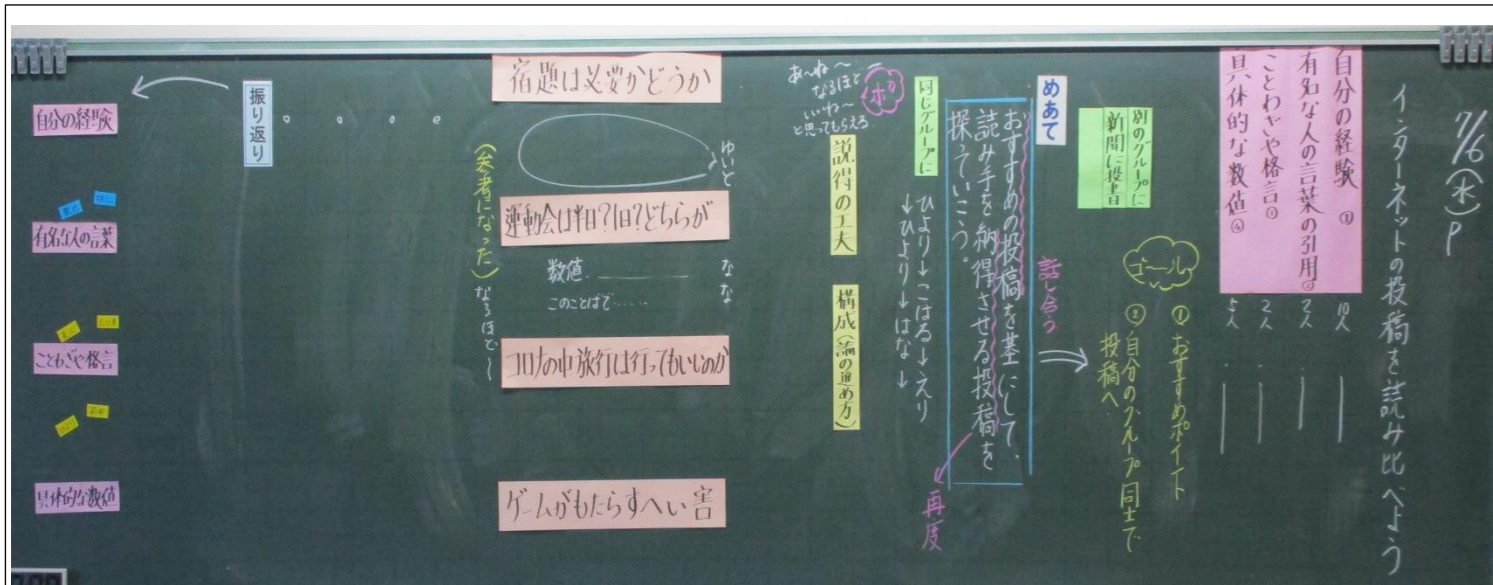 7/6(水)P
インターネットの投稿を読み比べよう
自分の経験
有名な人の言葉の引用
ことわざや格言
具体的な数値④
10人
2人
2人
5人
ゴール
① おすすめポイント
② 自分のグループ同士で
投稿へ
別のグループに
新聞に投書
話し合う
めあて
おすすめの投稿を基にして、
読み手を納得させる投稿を
探っていこう。
再度
同じグループに
ひより→こはる→えり
→ひより→はな→
あ〜ね〜
なるほど
いいね〜
と思ってもらえる
説得の工夫
構成(論の進め方)
宿題は必要かどうか
ゆいと
運動会は半日?1日?どちらが
なな
数値
このことばで……
コロナの中旅行は行ってもいいのか
ゲームがもたらすへい害
(参考になった)なるほど〜
振り返り
自分の経験
有名な人の言葉
ことわざや格言
具体的な数値